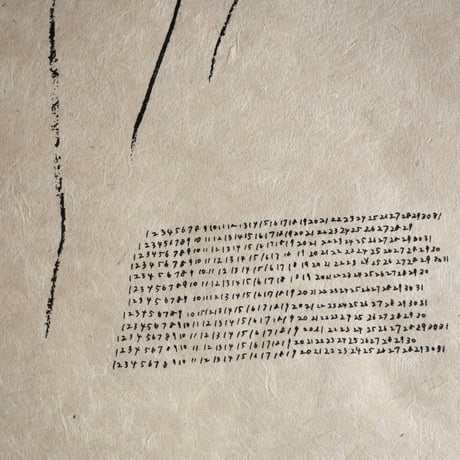 1 2 3 4 5 6 7 8 9 10 11 12 13 14 15 16 17 18 19 20 21 22 23 24 25 26 27 28 29 30 31
1 2 3 4 5 6 7 8 9 10 11 12 13 14 15 16 17 18 19 20 21 22 23 24 25 26 27 28 29
1 2 3 4 5 6 7 8 9 10 11 12 13 14 15 16 17 18 19 20 21 22 23 24 25 26 27 28 29 30 31
1 2 3 4 5 6 7 8 9 10 11 12 13 14 15 16 17 18 19 20 21 22 23 24 25 26 27 28 29 30
1 2 3 4 5 6 7 8 9 10 11 12 13 14 15 16 17 18 19 20 21 22 23 24 25 26 27 28 29 30 31
1 2 3 4 5 6 7 8 9 10 11 12 13 14 15 16 17 18 19 20 21 22 23 24 25 26 27 28 29 30
1 2 3 4 5 6 7 8 9 10 11 12 13 14 15 16 17 18 19 20 21 22 23 24 25 26 27 28 29 30 31
1 2 3 4 5 6 7 8 9 10 11 12 13 14 15 16 17 18 19 20 21 22 23 24 25 26 27 28 29 30 31
1 2 3 4 5 6 7 8 9 10 11 12 13 14 15 16 17 18 19 20 21 22 23 24 25 26 27 28 29 30
1 2 3 4 5 6 7 8 9 10 11 12 13 14 15 16 17 18 19 20 21 22 23 24 25 26 27 28 29 30 31
1 2 3 4 5 6 7 8 9 10 11 12 13 14 15 16 17 18 19 20 21 22 23 24 25 26 27 28 29 30
1 2 3 4 5 6 7 8 9 10 11 12 13 14 15 16 17 18 19 20 21 22 23 24 25 26 27 28 29 30 31